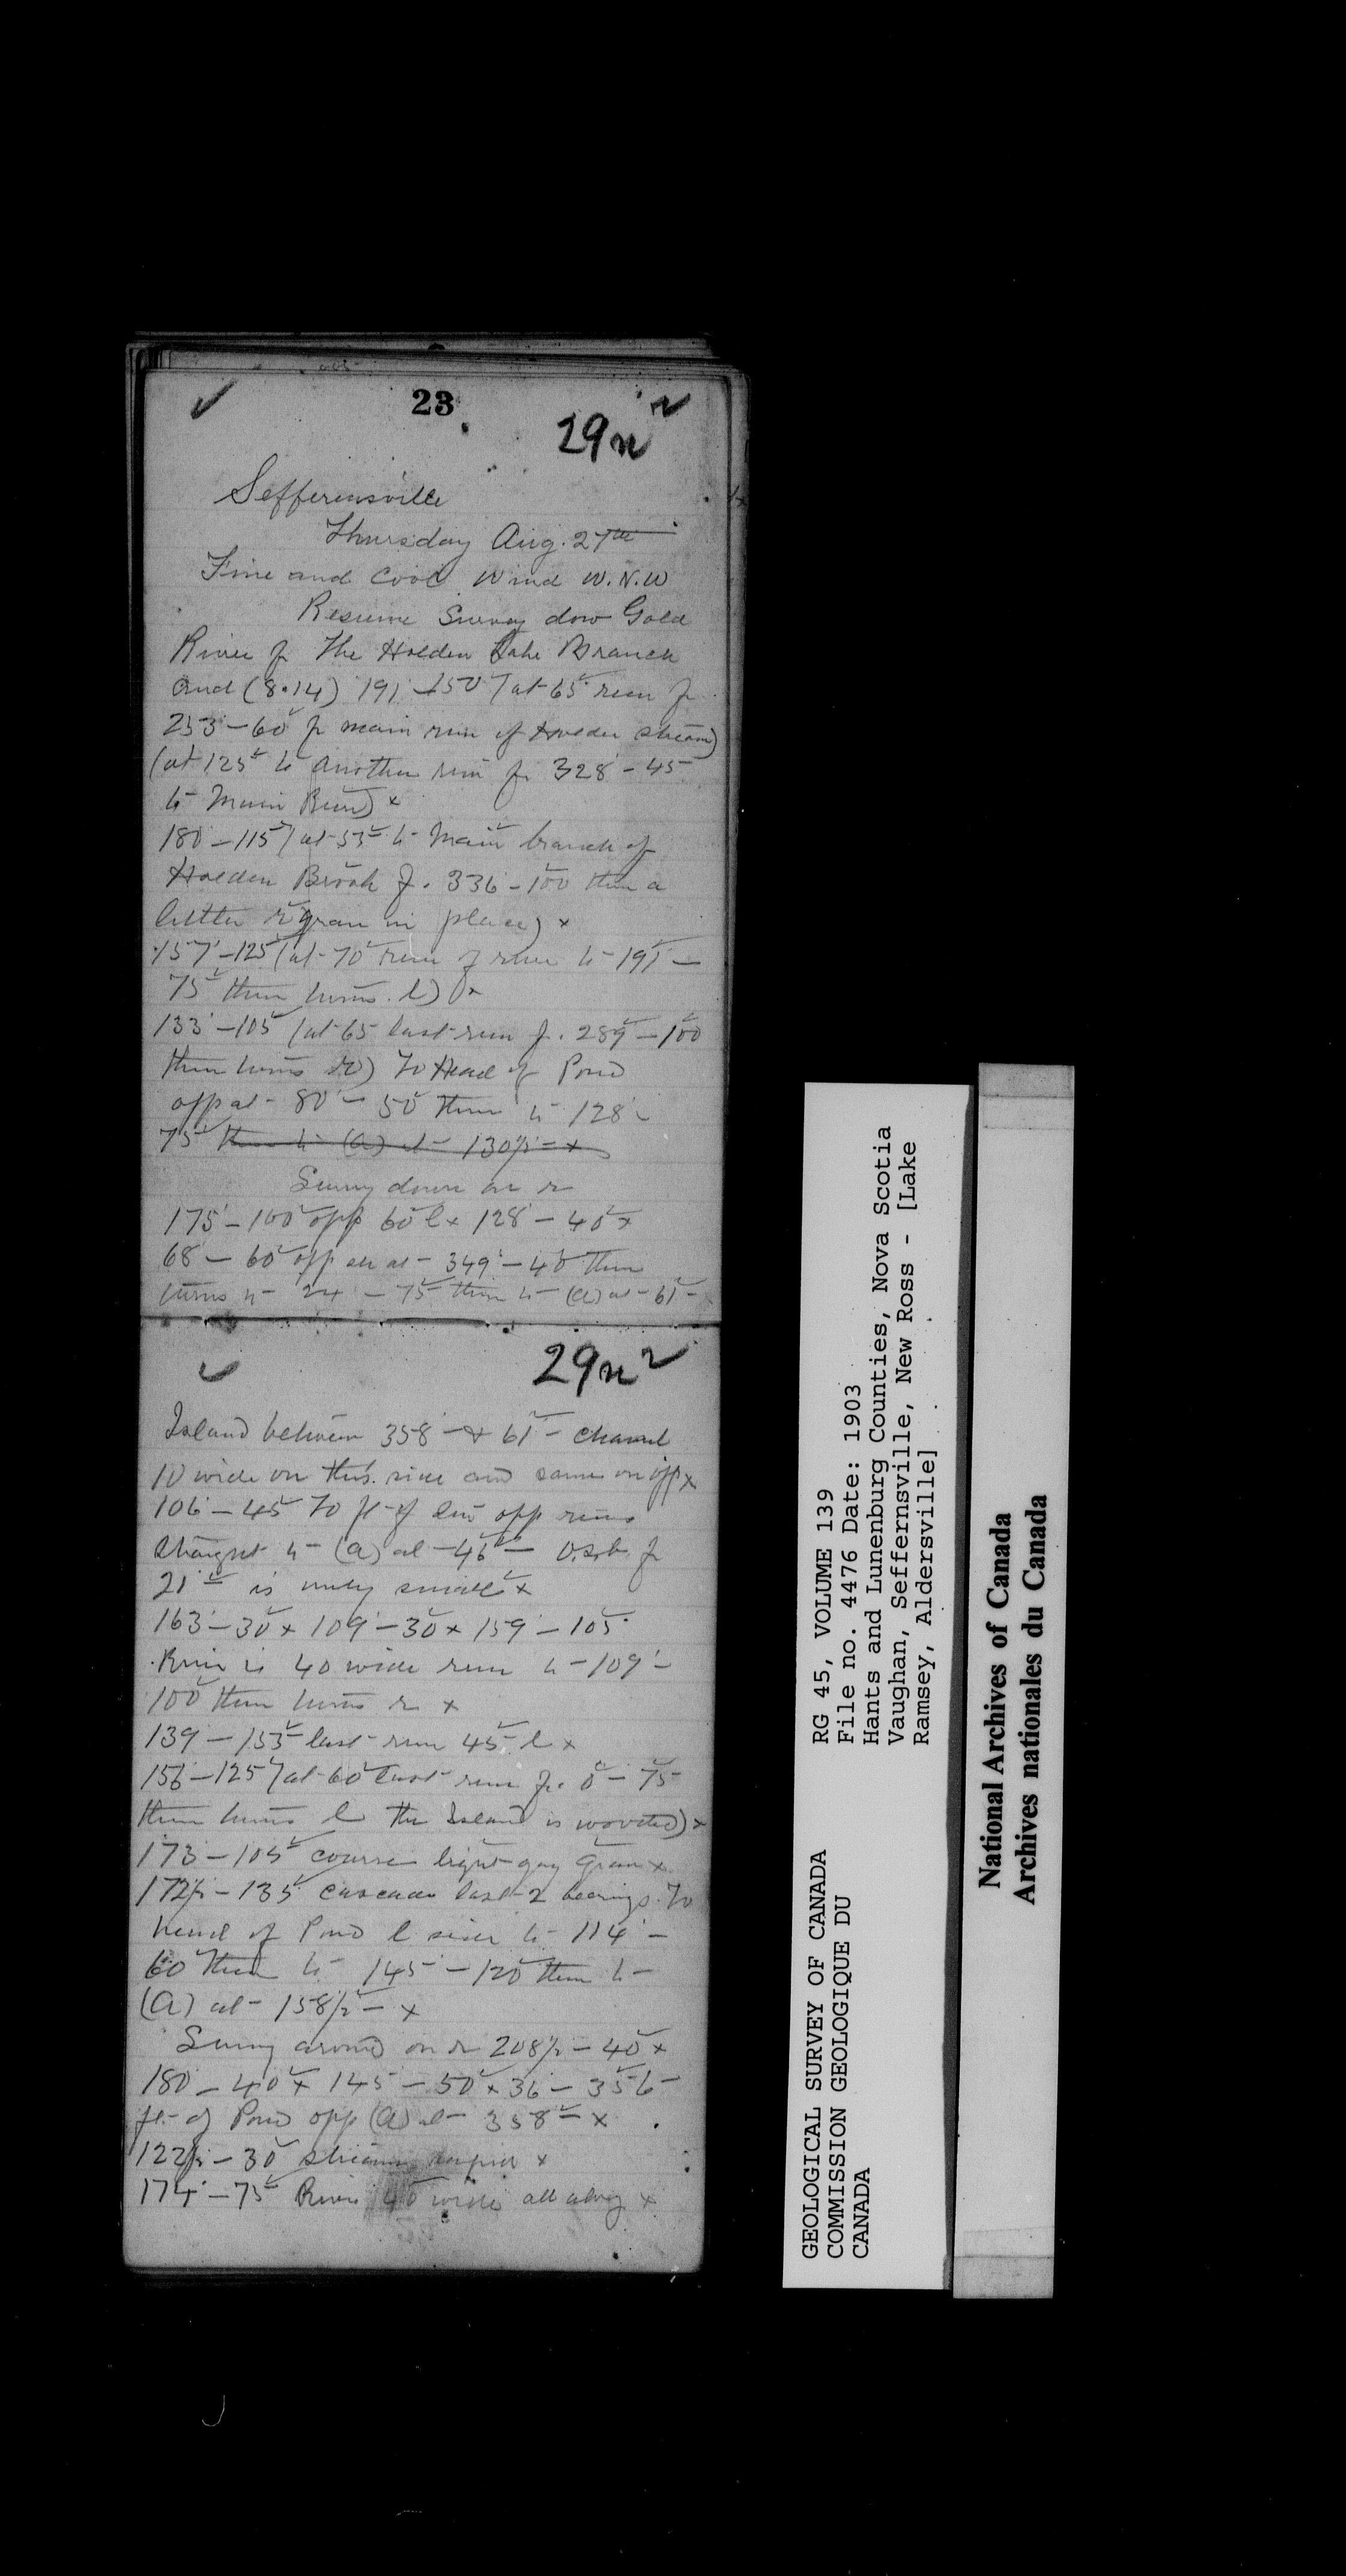 23
29n
Sefferensville
Thursday Aug. 27th
Fine and Cool Wind W.N.W
Resume Survey dow Gold
River fr The Holden Lake Branch
and (8.14) 191 - 150 (at 65 run fr
253 - 60 fr main run of Holden stream)
(at 125 to another run fr 328 - 45
to Main Run) x
180 - 115 (at 55 to Main branch of
Holden Brook fr. 336 - 100 then a
little r gran in place) x
157 - 125 (at 70 run of river to 191 -
75 then turns l) x
133 - 105 (at 65 last run fr. 289 - 100
then turns r) To Head of Pond
opp at - 80 - 50 then to 128 -
75 then to (a) at - 130½ - x
Survey down on r
175 - 100 opp 60 l x 128 - 40 x
68 - 60 opp at - 349 - 40 then
turns to 24 - 75 then to (a) at - 61 -
29n
Island between 358 - & 61 - channel
10 wide on this side and same on opp x
106 - 45 To ft of opp runs
straight to (a) at - 46 - fr
21 is only small x
163 - 30 x 109 - 30 x 159 - 105
River is 40 wide run to - 109 -
100 then turns r x
139 - 155 last run 45 l x
156 - 125 (at 60 last run fr. 0 - 75
then turns l The Island is wooded) x
173 - 105 course light gray Gran x
172½ - 135 cascade last 2 bearings. To
head of Pond l side to - 114 -
60 then to 145 - 120 then to -
(a) at - 158½ - x
Survey around on r 208½ - 40 x
180 - 40 x 145 - 50 x 36 - 35 to
ft. of Pond opp (a) at - 358 - x
122½ - 30 stream rapid x
174 - 75 River 40 wide all along x
GEOLOGICAL SURVEY OF CANADA
COMMISSION GEOLOGIQUE DU
CANADA
RG 45, VOLUME 139
File no. 4476 Date: 1903
Hants and Lunenburg Counties, Nova Scotia
Vaughan, Seffernsville, New Ross - [Lake
Ramsey, Aldersville]
National Archives of Canada
Archives nationales du Canada